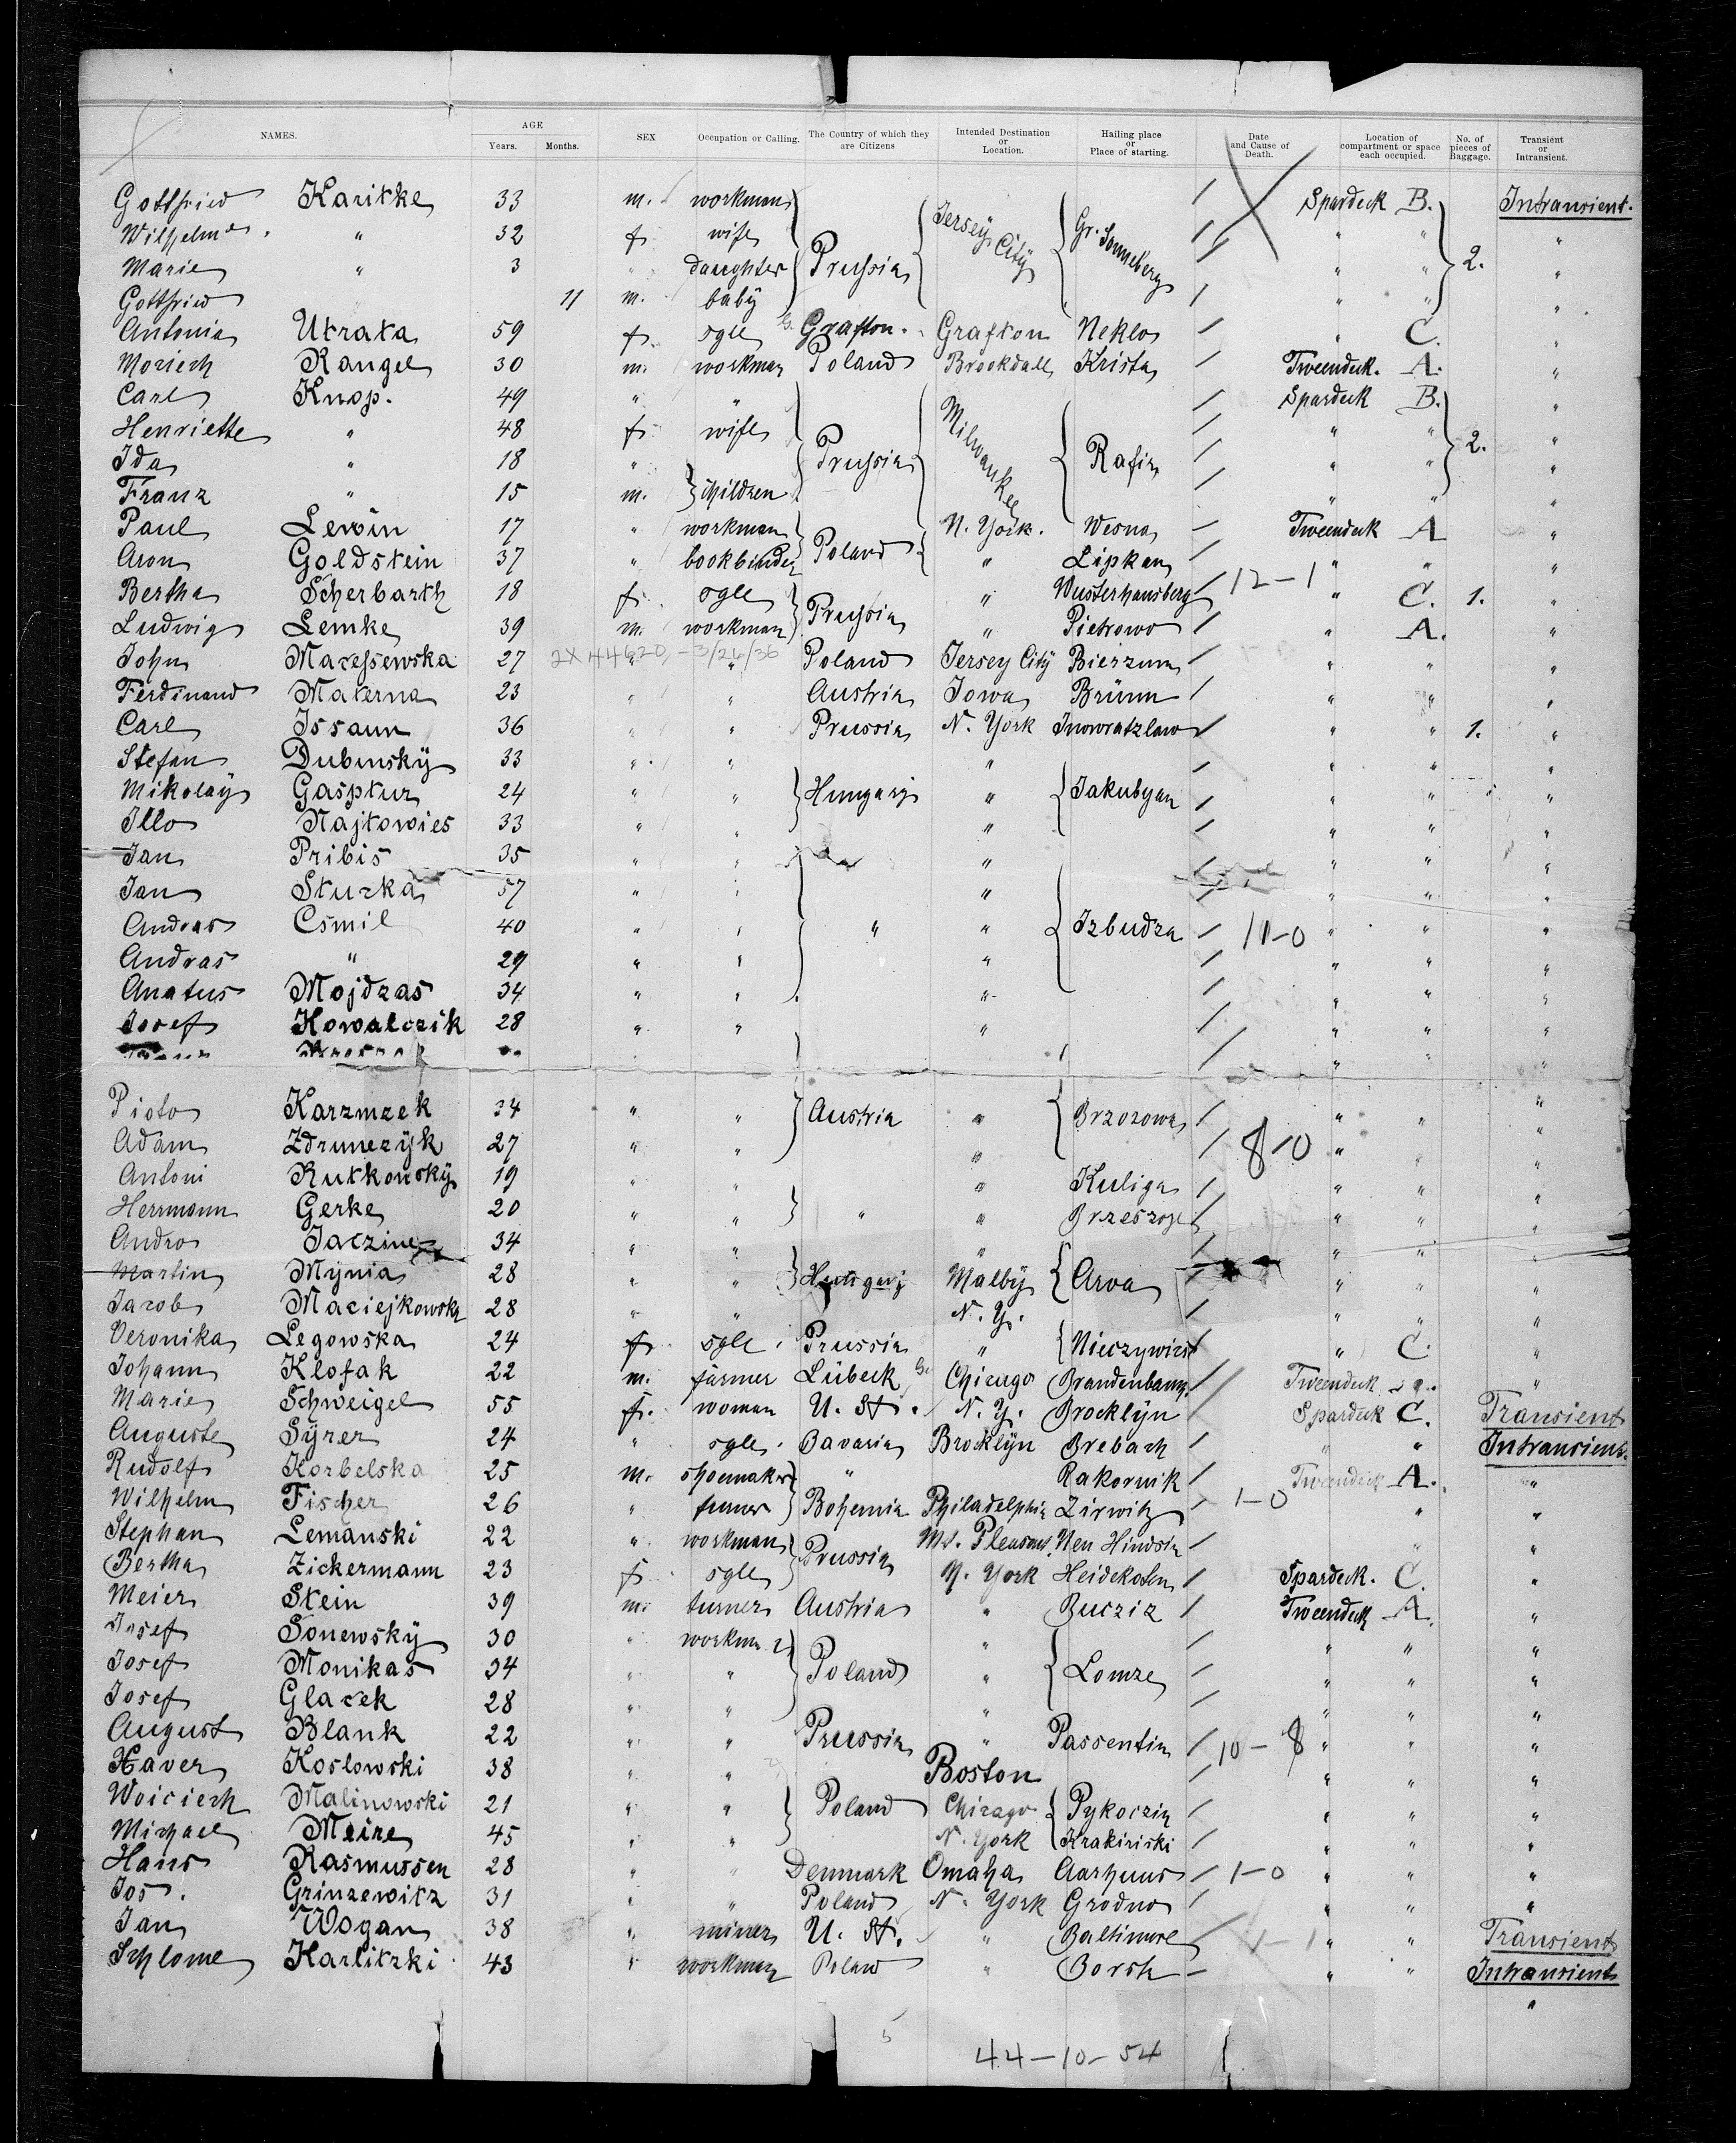 NAMES. AGE Years. Months. SEX Occupation or Calling. The Country of which they are Citizens Intended Destination or Location. Hailing place or Place of starting. Date and Cause of Death. Location of compartment or space each occupied. No. of pieces of Baggage. Transient or Intransient.
Gottfried Karitke 33 m. workman Prussia Jersey City Gr. Sonneberg / Spardeck B. 2. Intransient.
Wilhelme " 32 f. wife / " " "
Marie " 3 " daughter / " " "
Gottfried 11 m. baby / " " "
Antonia Utrata 59 f. sgle Grafton. Grafton Neklo / " C. "
Moriech Rangel 30 m. workman Poland Brookdall Krista / Tweendeck. A. "
Carl Knop. 49 " " Prussia Milwaukee Rafin / Spardeck B. 2. "
Henriette " 48 f. wife / " " "
Ida " 18 " children / " " "
Franz " 15 m. / " " "
Paul Lewin 17 " workman Poland N. York. Wesna / Tweendeck A "
Aron Goldstein 37 " bookbinder " Lipkan / " " "
Bertha Scherbarth 18 f. sgle Prussia " Wusterhansberg / 12-1 " C. 1. "
Ludwig Lemke 39 m. workman " Pietrowo / " A. "
John Macejsewska 27 2X44620-3/26/36 " " Poland Jersey City Bierzum / " " "
Ferdinand Materna 23 " " Austria Iowa Brünn / " " "
Carl Issaun 36 " " Prussia N. York Inowratzlaw / " " 1. "
Stefan Dubinsky 33 " " Hungary " Jakubyan / " " "
Mikolay Gasptur 24 " " " / " " "
Illo Najtowies 33 " " " / " " "
Jan Pribis 35 " " " " Izbudza / " " "
Jan Sturka 57 " " " / " " "
Andras Csmil 40 " " " / 11-0 " " "
Andras " 29 " " " / " " "
Anatus Mojdzas 34 " " " / " " "
Josef Kowalczik 28 " " " / " " "
Pioto Karzmzek 34 " " Austria " Brzozowa / " " "
Adam Zdrunezyk 27 " " " / 8-0 " " "
Antoni Rutkowsky 19 " " " " Kuliga / " " "
Herrmann Gerke 20 " " " / " " "
Andro Jaczine 34 " " Hungary " Arva / " " "
Martin Mynia 28 " " Malby / " " "
Jacob Maciejkowska 28 " " N. Y. / " " "
Veronika Legowska 24 f. sgle. Prussia " / " C. "
Johann Klofak 22 m. farmer Lübeck Chicago / Tweendeck "
Marie Schweigel 55 f. woman U. St. N. Y. Brocklyn / Spardeck C. Transient
Auguste Syrer 24 " sgle. Bavaria Brocklyn Brebach / " " Intransient.
Rudolf Korbelska 25 m. shoemaker " Rakornik / Tweendeck A. "
Wilhelm Fischer 26 " turner Bohemia Philadelphia Zirwitz / 1-0 " "
Stephan Lemanski 22 " workman Prussia Mt. Pleasant. Neu Hindsin / " "
Bertha Zickermann 23 f. sgle N. York Heidekaten / Spardeck. C. "
Meier Stein 39 m. turner Austria " Bucziz / Tweendeck A. "
Josef Sonewsky 30 " workman Poland " Lomze / " " "
Josef Monikas 34 " " " / " " "
Josef Glacek 28 " " " / " " "
August Blank 22 " " Prussia " Passentin / 10-8 " " "
Xaver Koslowski 38 " " Boston / " " "
Woiciech Malinowski 21 " " Poland Chicago Pykoczin / " " "
Michael Meire 45 " " N. York Krakiriski / " " "
Hans Rasmussen 28 " " Denmark Omaha Aarhuus / 1-0 " " "
Jos. Grinzewitz 31 " " Poland N. York Grodno / " " "
Jan Wogan 38 " miner U. St. " Baltimore / 1-1 " " Transient
Schlome Karlitzki. 43 " workman Poland " Borsk - " " Intransient
"
44-10-54